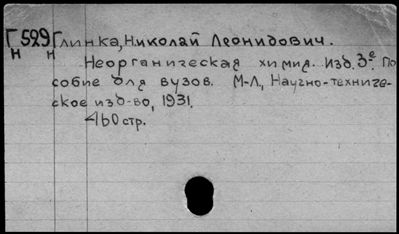 Г 529 Глинка, Николай Леонидович.
Н Н
Неорганическая химия. Изд. 3е. По
собие для вузов. М-Л, Научно-техниче-
ское изд-во, 1931.
460 стр.